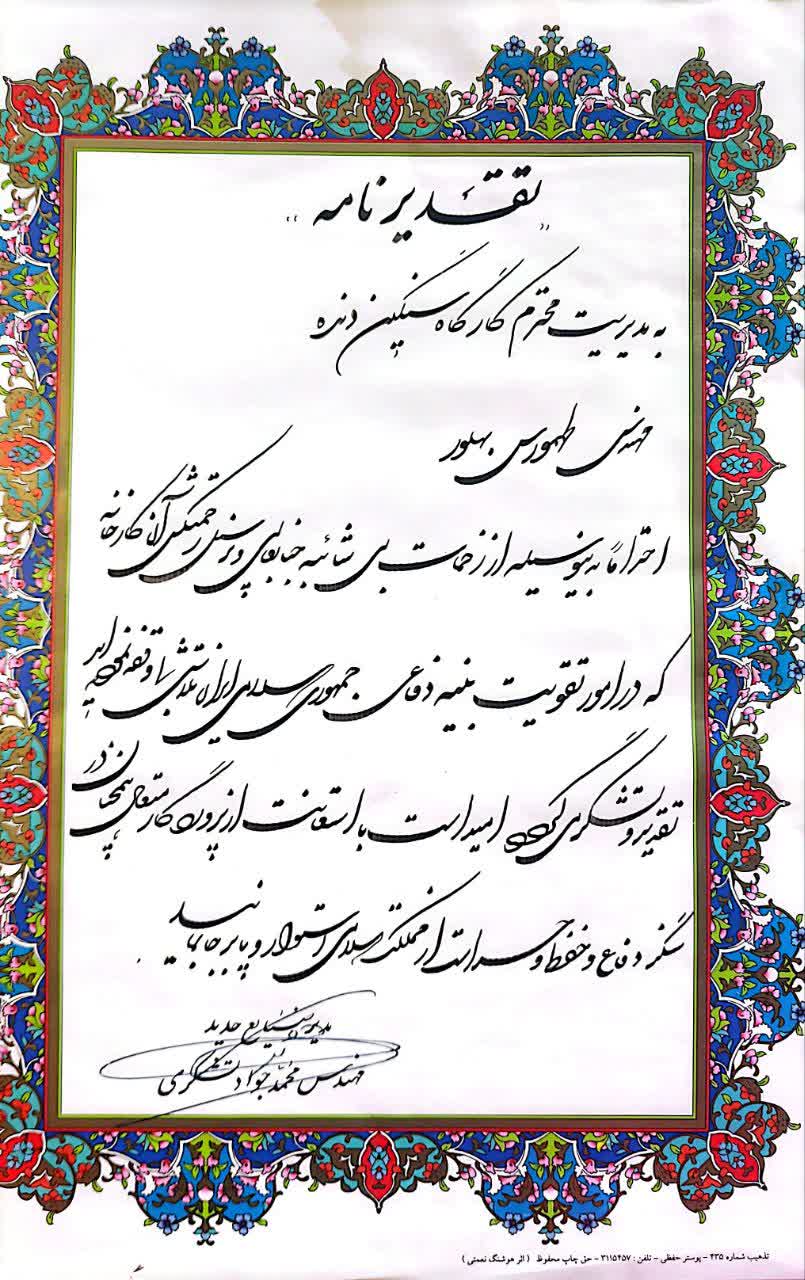 "تقدیر نامه"
به مدیریت محترم کارگاه سنگین دنده
مهندس طهمورس بهلور
احتراماً بدینوسیله از زحمات بی شائبه جنابعالی و پرسنل زحمتکش آن کارخانه
که در امور تقویت بنیه دفاعی جمهوری اسلامی ایران تلاش وقفه
تقدیر و تشکر می گردد امید است با استعانت از پروردگار متعال همچنان در
سنگر دفاع و حفظ و حراست از مملکت اسلامی استوار و پا برجا بمانید.
مدیریت صنایع حدید
مهندس محمد جواد لشکری
تذهیب شماره ۴۳۵ - پوستر حفظی - تلفن : ۳۱۱۵۴۵۷ - حق چاپ محفوظ (اثر هوشنگ نعمتی)